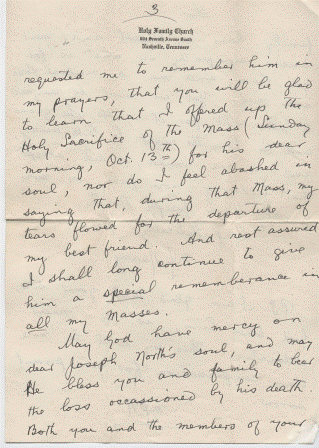 3
Holy Family Church
Seventh Avenue South
Nashville, Tennessee
requested me to remember him in
my prayers, that you will be glad
to learn that I offered up the
Holy Sacrifice of the Mass (Sunday
morning, Oct. 13th) for his dear
soul, nor do I feel abashed in
saying that, during that Mass, my
tears flowed for the departure of
my best friend. And rest assured
I shall long continue to give
him a special rememberance in
all my Masses.
May God have mercy on
dear Joseph North's soul, and may
He bless you and family to bear
the loss occassioned by his death.
Both you and the members of your